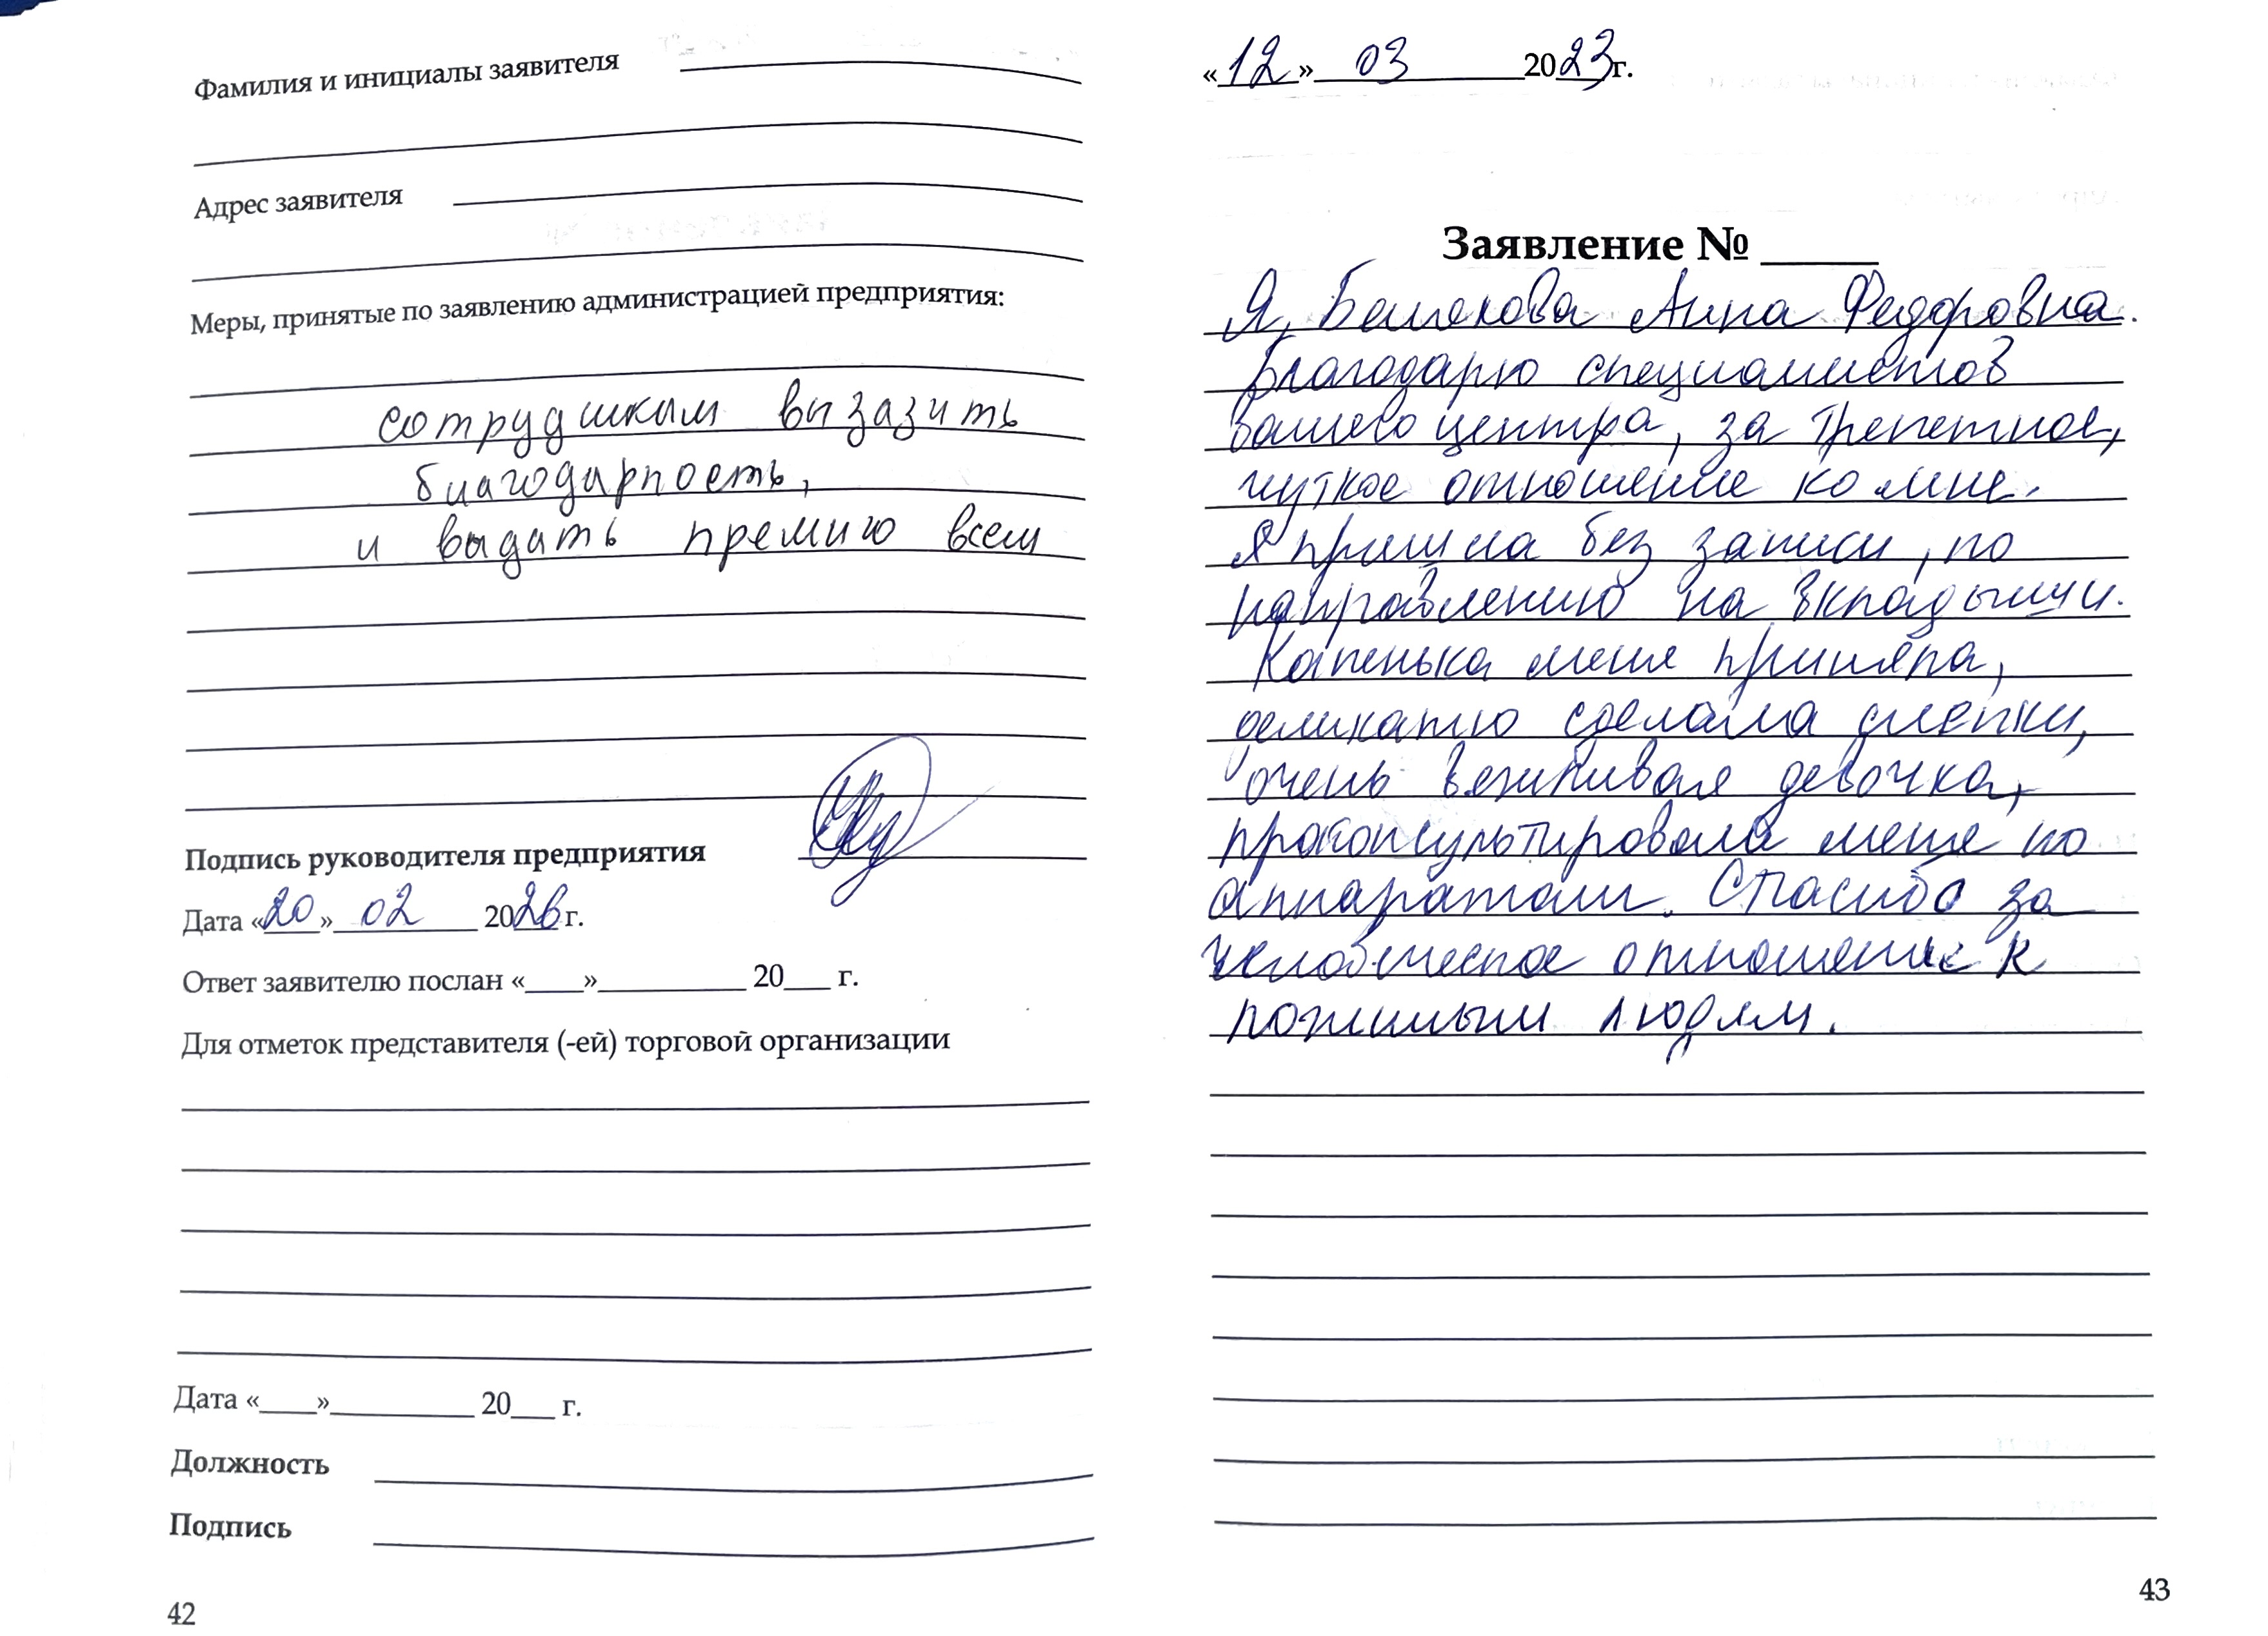 Фамилия и инициалы заявителя
Адрес заявителя
Меры, принятые по заявлению администрацией предприятия:
сотрудникам вызазить
благодарность,
и выдать премию всем
Подпись руководителя предприятия
Дата «20» 02 2026 г.
Ответ заявителю послан «____»__________ 20___ г.
Для отметок представителя (-ей) торговой организации
Дата «____»__________ 20___ г.
Должность
Подпись
42
«12» 03 2023г.
Заявление № _____
Я, Анна Федоровна.
Благодарю специалистов
вашего центра, за трепетное,
чуткое отношение ко мне.
Я пришла без записи, по
направлению на вкладыши.
Катенька меня приняла,
деликатно сделала слепки,
очень вежливая девочка,
проконсультировала меня по
аппаратам. Спасибо за
человеческое отношение к
пожилым людям.
43